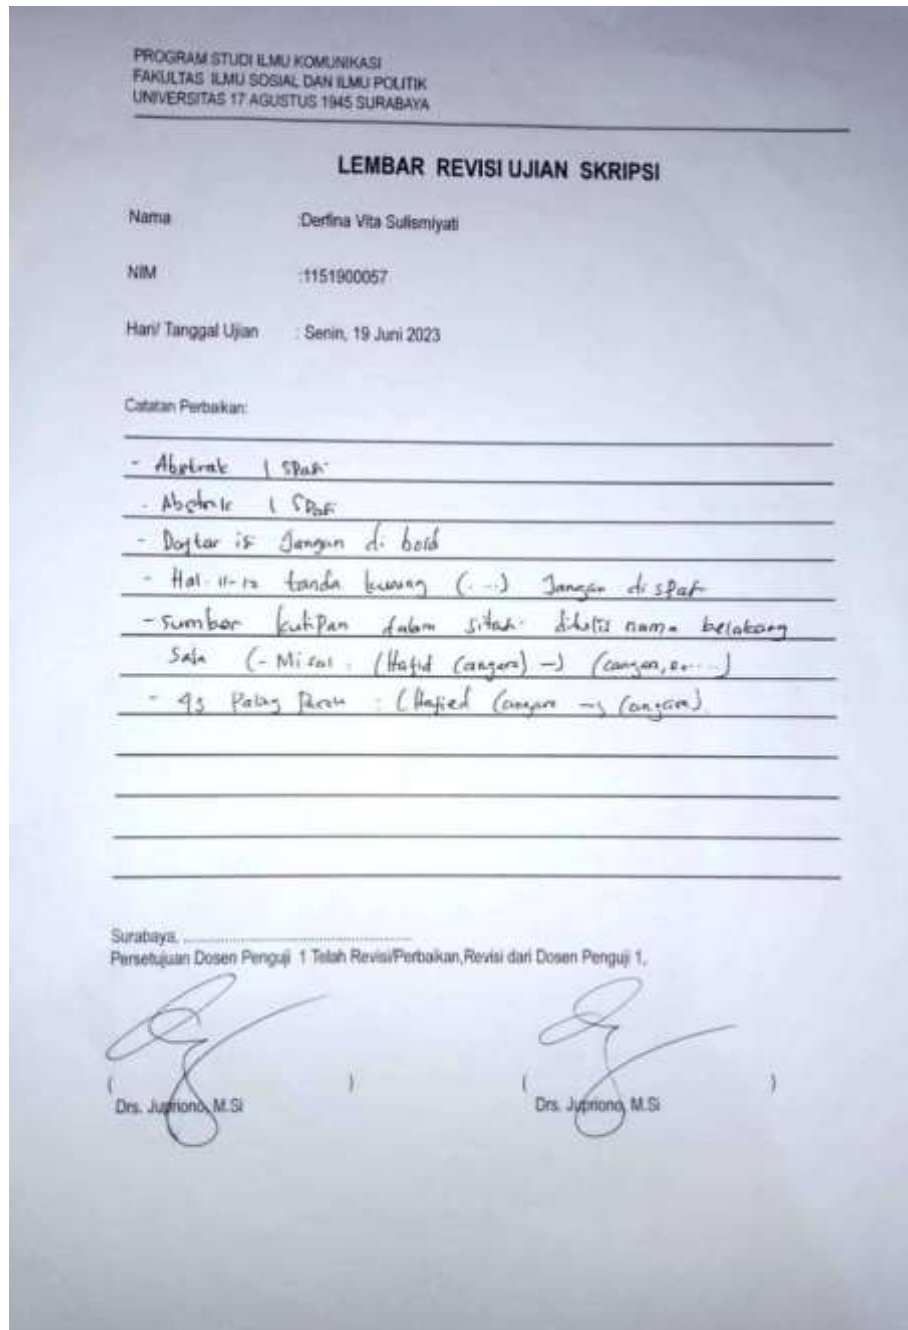 PROGRAM STUDI ILMU KOMUNIKASI
FAKULTAS ILMU SOSIAL DAN ILMU POLITIK
UNIVERSITAS 17 AGUSTUS 1945 SURABAYA
LEMBAR REVISI UJIAN SKRIPSI
Nama :Derfina Vita Sulismiyati
NIM :1151900057
Hari/ Tanggal Ujian : Senin, 19 Juni 2023
Catatan Perbaikan:
- Abstrak 1 spasi
- Abstrak 1 spasi
- Daftar isi Jangan di bold
- Hal. 11-12 tanda kurung (...) Jangan di
- Sumber kutipan dalam ditulis nama belakang
Saja (- Misal : (Hafid Cangara) →) (cangara,
- : (Hafied Cangara → Cangara)
Surabaya, ..........................................
Persetujuan Dosen Penguji 1 Telah Revisi/Perbaikan,Revisi dari Dosen Penguji 1,
( ) ( )
Drs. Jupriono, M.Si Drs. Jupriono, M.Si